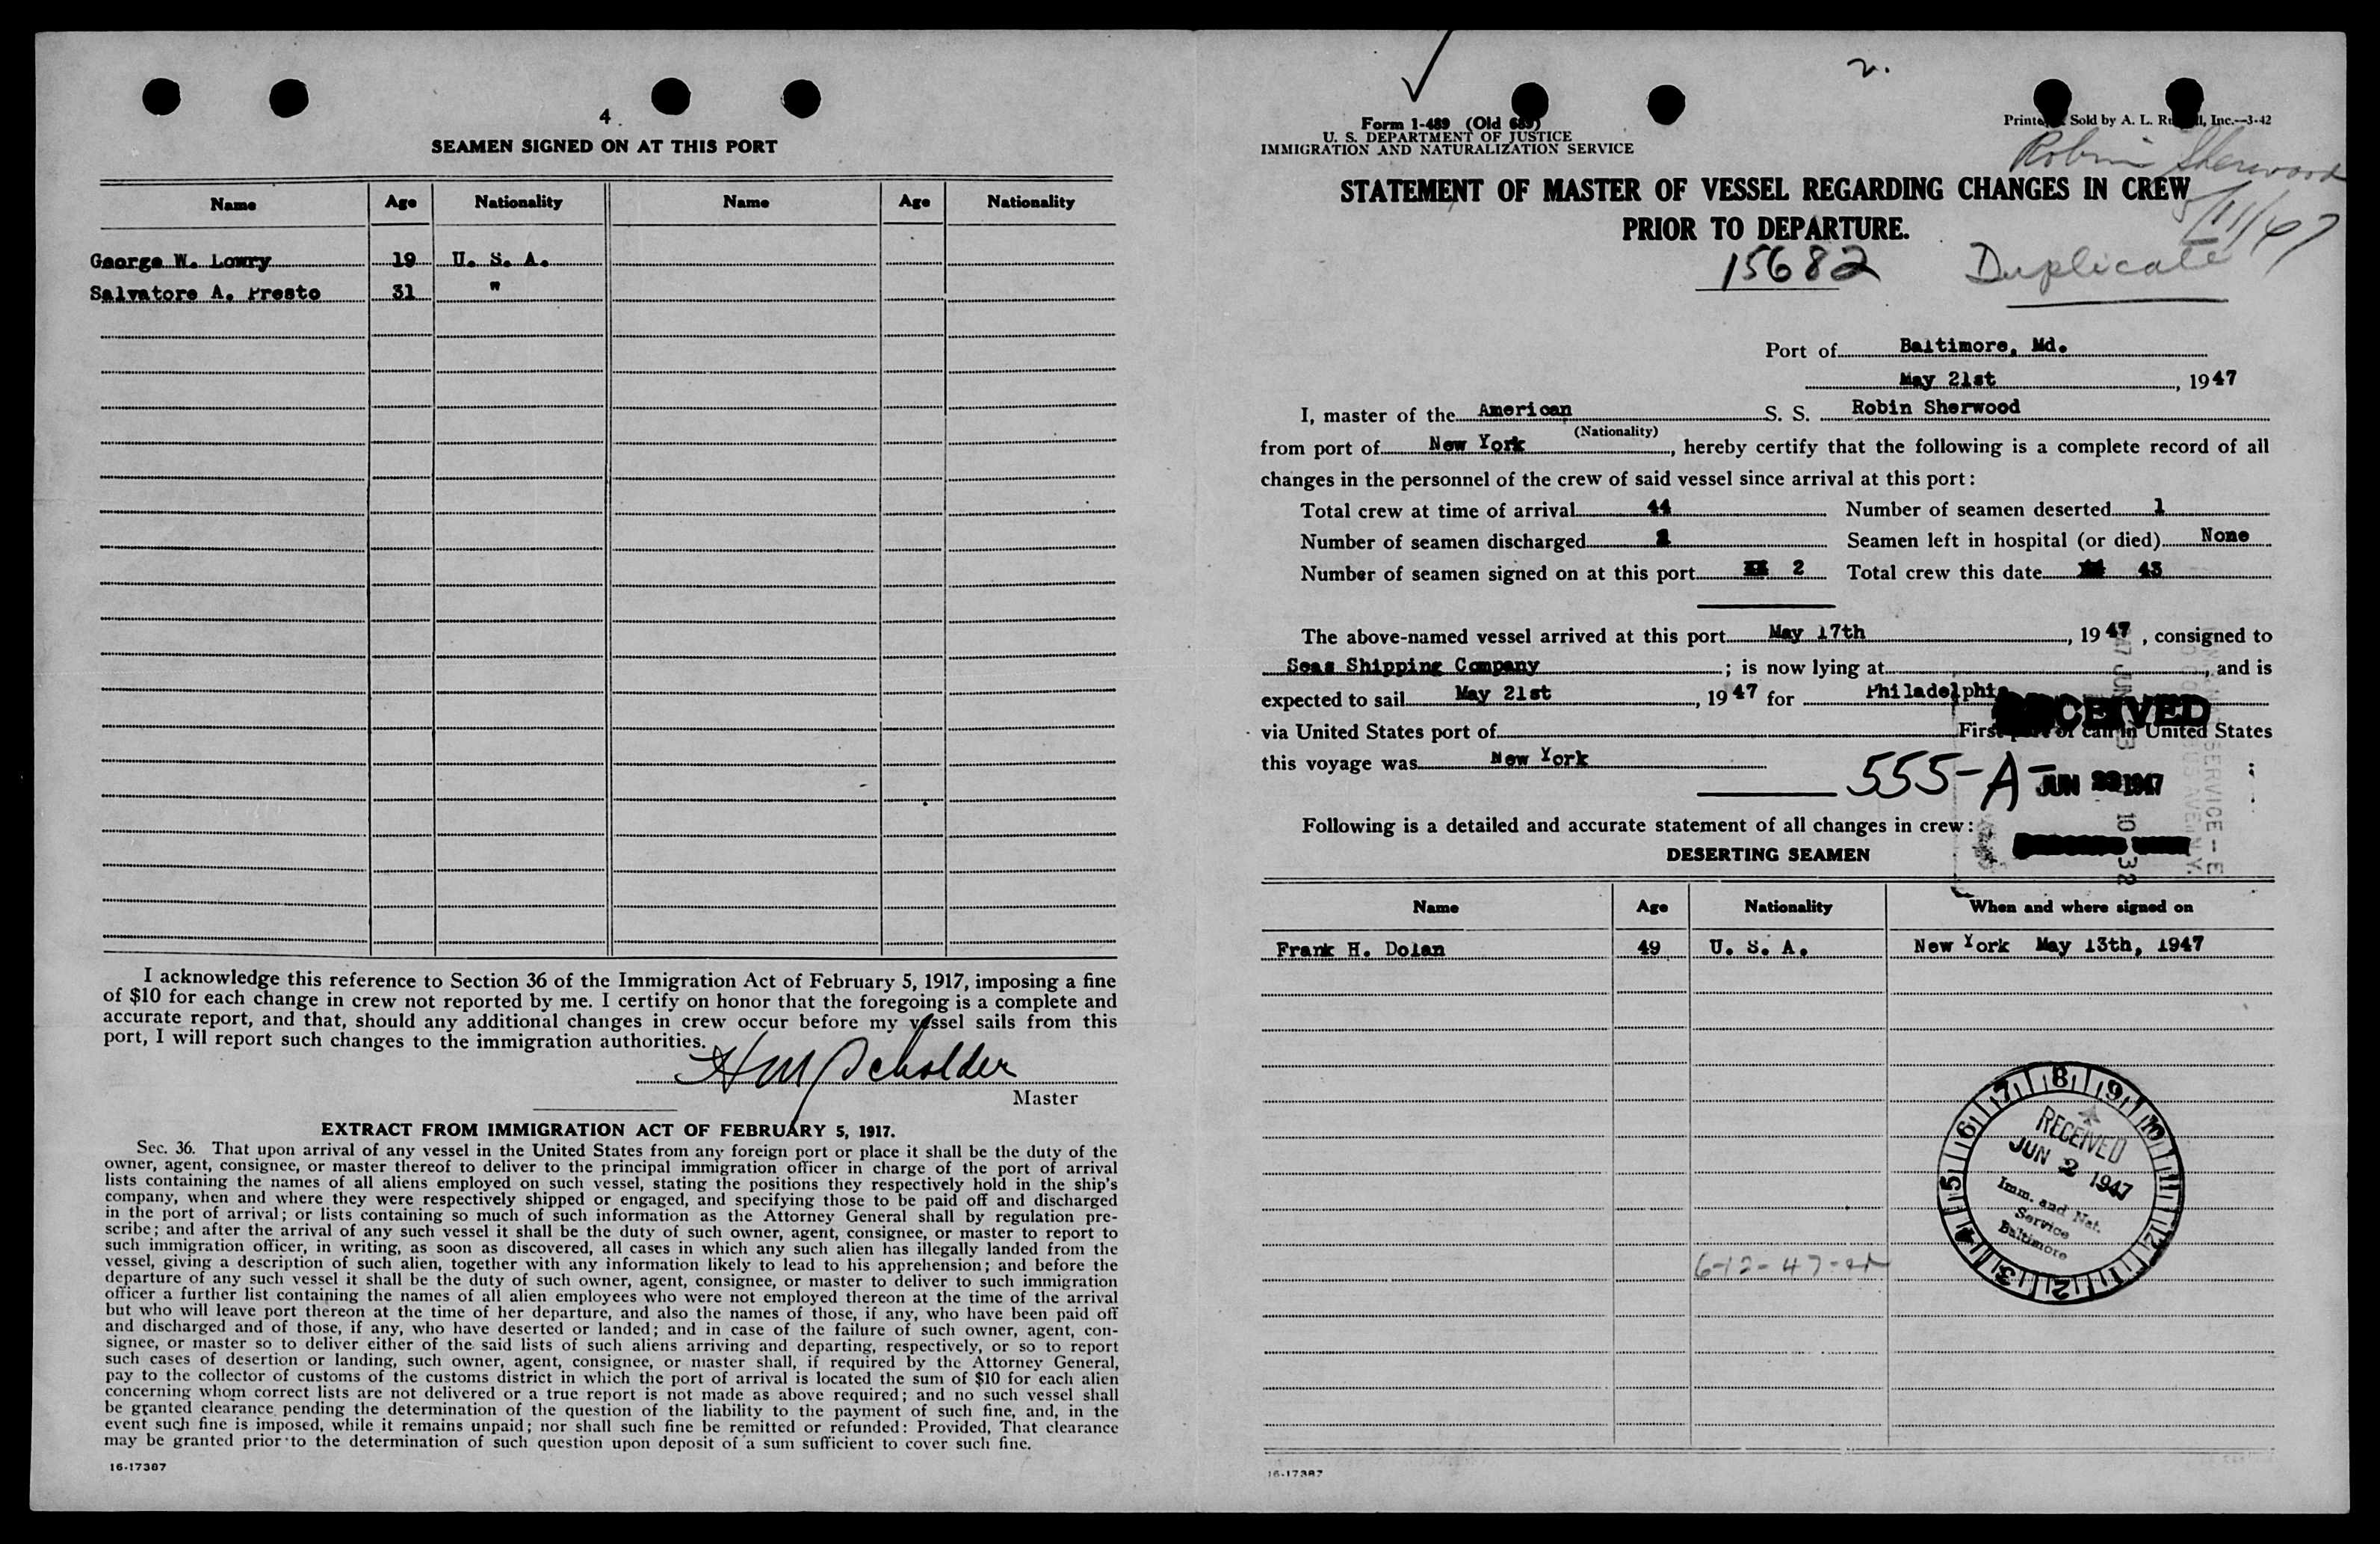 4
SEAMEN SIGNED ON AT THIS PORT
Name Age Nationality Name Age Nationality
George W. Lowry 19 U. S. A.
Salvatore A. Presto 31 "
I acknowledge this reference to Section 36 of the Immigration Act of February 5, 1917, imposing a fine
of $10 for each change in crew not reported by me. I certify on honor that the foregoing is a complete and
accurate report, and that, should any additional changes in crew occur before my vessel sails from this
port, I will report such changes to the immigration authorities.
Scholder
Master
EXTRACT FROM IMMIGRATION ACT OF FEBRUARY 5, 1917.
Sec. 36. That upon arrival of any vessel in the United States from any foreign port or place it shall be the duty of the
owner, agent, consignee, or master thereof to deliver to the principal immigration officer in charge of the port of arrival
lists containing the names of all aliens employed on such vessel, stating the positions they respectively hold in the ship's
company, when and where they were respectively shipped or engaged, and specifying those to be paid off and discharged
in the port of arrival; or lists containing so much of such information as the Attorney General shall by regulation pre-
scribe; and after the arrival of any such vessel it shall be the duty of such owner, agent, consignee, or master to report to
such immigration officer, in writing, as soon as discovered, all cases in which any such alien has illegally landed from the
vessel, giving a description of such alien, together with any information likely to lead to his apprehension; and before the
departure of any such vessel it shall be the duty of such owner, agent, consignee, or master to deliver to such immigration
officer a further list containing the names of all alien employees who were not employed thereon at the time of the arrival
but who will leave port thereon at the time of her departure, and also the names of those, if any, who have been paid off
and discharged and of those, if any, who have deserted or landed; and in case of the failure of such owner, agent, con-
signee, or master so to deliver either of the said lists of such aliens arriving and departing, respectively, or so to report
such cases of desertion or landing, such owner, agent, consignee, or master shall, if required by the Attorney General,
pay to the collector of customs of the customs district in which the port of arrival is located the sum of $10 for each alien
concerning whom correct lists are not delivered or a true report is not made as above required; and no such vessel shall
be granted clearance pending the determination of the question of the liability to the payment of such fine, and, in the
event such fine is imposed, while it remains unpaid; nor shall such fine be remitted or refunded: Provided, That clearance
may be granted prior to the determination of such question upon deposit of a sum sufficient to cover such fine.
16-17387
2.
Form 1-489 (Old 689)
U. S. DEPARTMENT OF JUSTICE
IMMIGRATION AND NATURALIZATION SERVICE
Sold by A. L. Inc.—3-42
Robin Sherwood
5/11/47
STATEMENT OF MASTER OF VESSEL REGARDING CHANGES IN CREW
PRIOR TO DEPARTURE.
15682
Duplicate
Port of Baltimore, Md.
May 21st, 1947
I, master of the American S. S. Robin Sherwood
(Nationality)
from port of New York, hereby certify that the following is a complete record of all
changes in the personnel of the crew of said vessel since arrival at this port:
Total crew at time of arrival 44 Number of seamen deserted 1
Number of seamen discharged Seamen left in hospital (or died) None
Number of seamen signed on at this port 2 Total crew this date 43
The above-named vessel arrived at this port May 17th, 1947, consigned to
Seas Shipping Company; is now lying at , and is
expected to sail May 21st, 1947 for Philadelphia
via United States port of First port of call in United States
this voyage was New York
RECEIVED
555-A
JUN 1947
Following is a detailed and accurate statement of all changes in crew:
DESERTING SEAMEN
Name Age Nationality When and where signed on
Frank H. Dolan 49 U. S. A. New York May 13th, 1947
RECEIVED
JUN 2 1947
Imm. and Nat.
Service
Baltimore
6-12-47
16-17387